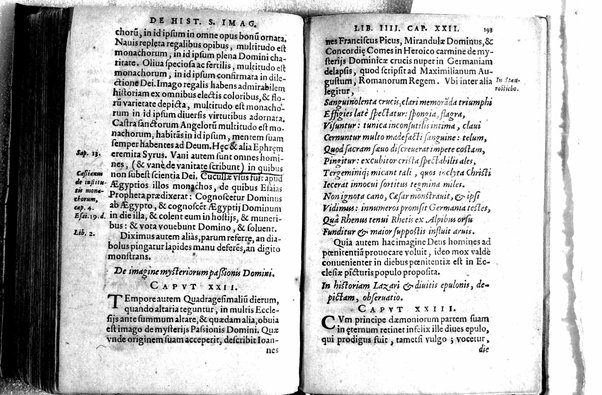 DE HIST. S. IMAG.
chorũ, in id ipsum in omne opus bonũ ornata.
Nauis repleta regalibus opibus, multitudo est
monachorum, in id ipsum plena Domini cha-
ritate. Oliua speciosa ac fertilis, multitudo est
monachorum, in id ipsum confirmata in dile-
ctione Dei. Imago regalis habens admirabilem
historiam ex omnibus electis coloribus, & flo-
rũ varietate depicta, multitudo est monacho-
rum in id ipsum diuersis virtutibus adornata.
Castra sanctorum Angelorũ multitudo est mo-
nachorum, habitãs in id ipsum, mentem suam
semper habentes ad Deum. Hęc & Ephrem
Sap. 13.
eremita Syrus. Vani autem sunt omnes homi-
nes, (& vanè de vanitate scribunt) in quibus
Castianum
non subest scientia Dei. Cucullæ vsus fuit apud
de institu-
tis mona-
Ægyptios illos monachos, de quibus Esaias
chorum,
Propheta prædixerat: Cognoscetur Dominus
cap. 4.
ab Ægypto, & cognoscẽt Ægyptij Dominum
Esai. 19. d.
in die illa, & colent eum in hostijs, & muneri-
bus: & vota vouebunt Domino, & soluent.
Lib. 2.
Diximus autem aliàs, parum referre, an dia-
bolus pingatur lapides manu deferẽs, an digito
monstrans.
De imagine mysteriorum passionis Domini.
CAPVT XXII.
TEmpore autem Quadragesimaliũ dierum,
quando altaria teguntur, in multis Eccle-
sijs ante summum altare, & quædam alia, obuia
est imago de mysterijs Passionis Domini. Quæ
vnde originem suam acceperit, describit Ioan-
nes
LIB. IIII. CAP. XXII.
198
nes Franciscus Picus, Mirandulæ Dominus, &
Concordię Comes in Heroico carmine de my-
sterijs Dominicæ crucis nuper in Germaniam
delapsis, quod scripsit ad Maximilianum Au-
gustum, Romanorum Regem. Vbi inter alia
In Stau-
rosticho.
legitur,
Sanguinolenta crucis, clari memorãda triumphi
Effigies latè spectatur: spongia, flagra,
Visuntur: tunica inconsutilis intima, claui
Cernuntur multo madefacti sanguine: telum,
Quod sacram sæuo discreuerat impete costam,
Pingitur: excubitor crista spectabilis ales,
Tergeminiq́; micant tali, quos inclyta Christi
Iecerat innocui sortitus tegmina miles.
Non ignota cano, Cæsar monstrauit, & ipsi
Vidimus: innumeros promsit Germania testes,
Quà Rhenus tenui Rhetis ex Alpibus orsu
Funditur & maior suppostis influit aruis.
Quia autem hac imagine Deus homines ad
pœnitentiã prouocare voluit, ideo mox valdè
conuenienter in diebus pœnitentiæ est in Ec-
clesiæ picturis populo proposita.
In historiam Lazari & diuitis epulonis, de-
pictam, obseruatio.
CAPVT XXIII.
CVm principe dæmoniorum partem suam
in æternum retinet infelix ille diues epulo,
qui prodigus fuit, tametsi vulgo ; vocetur,
die